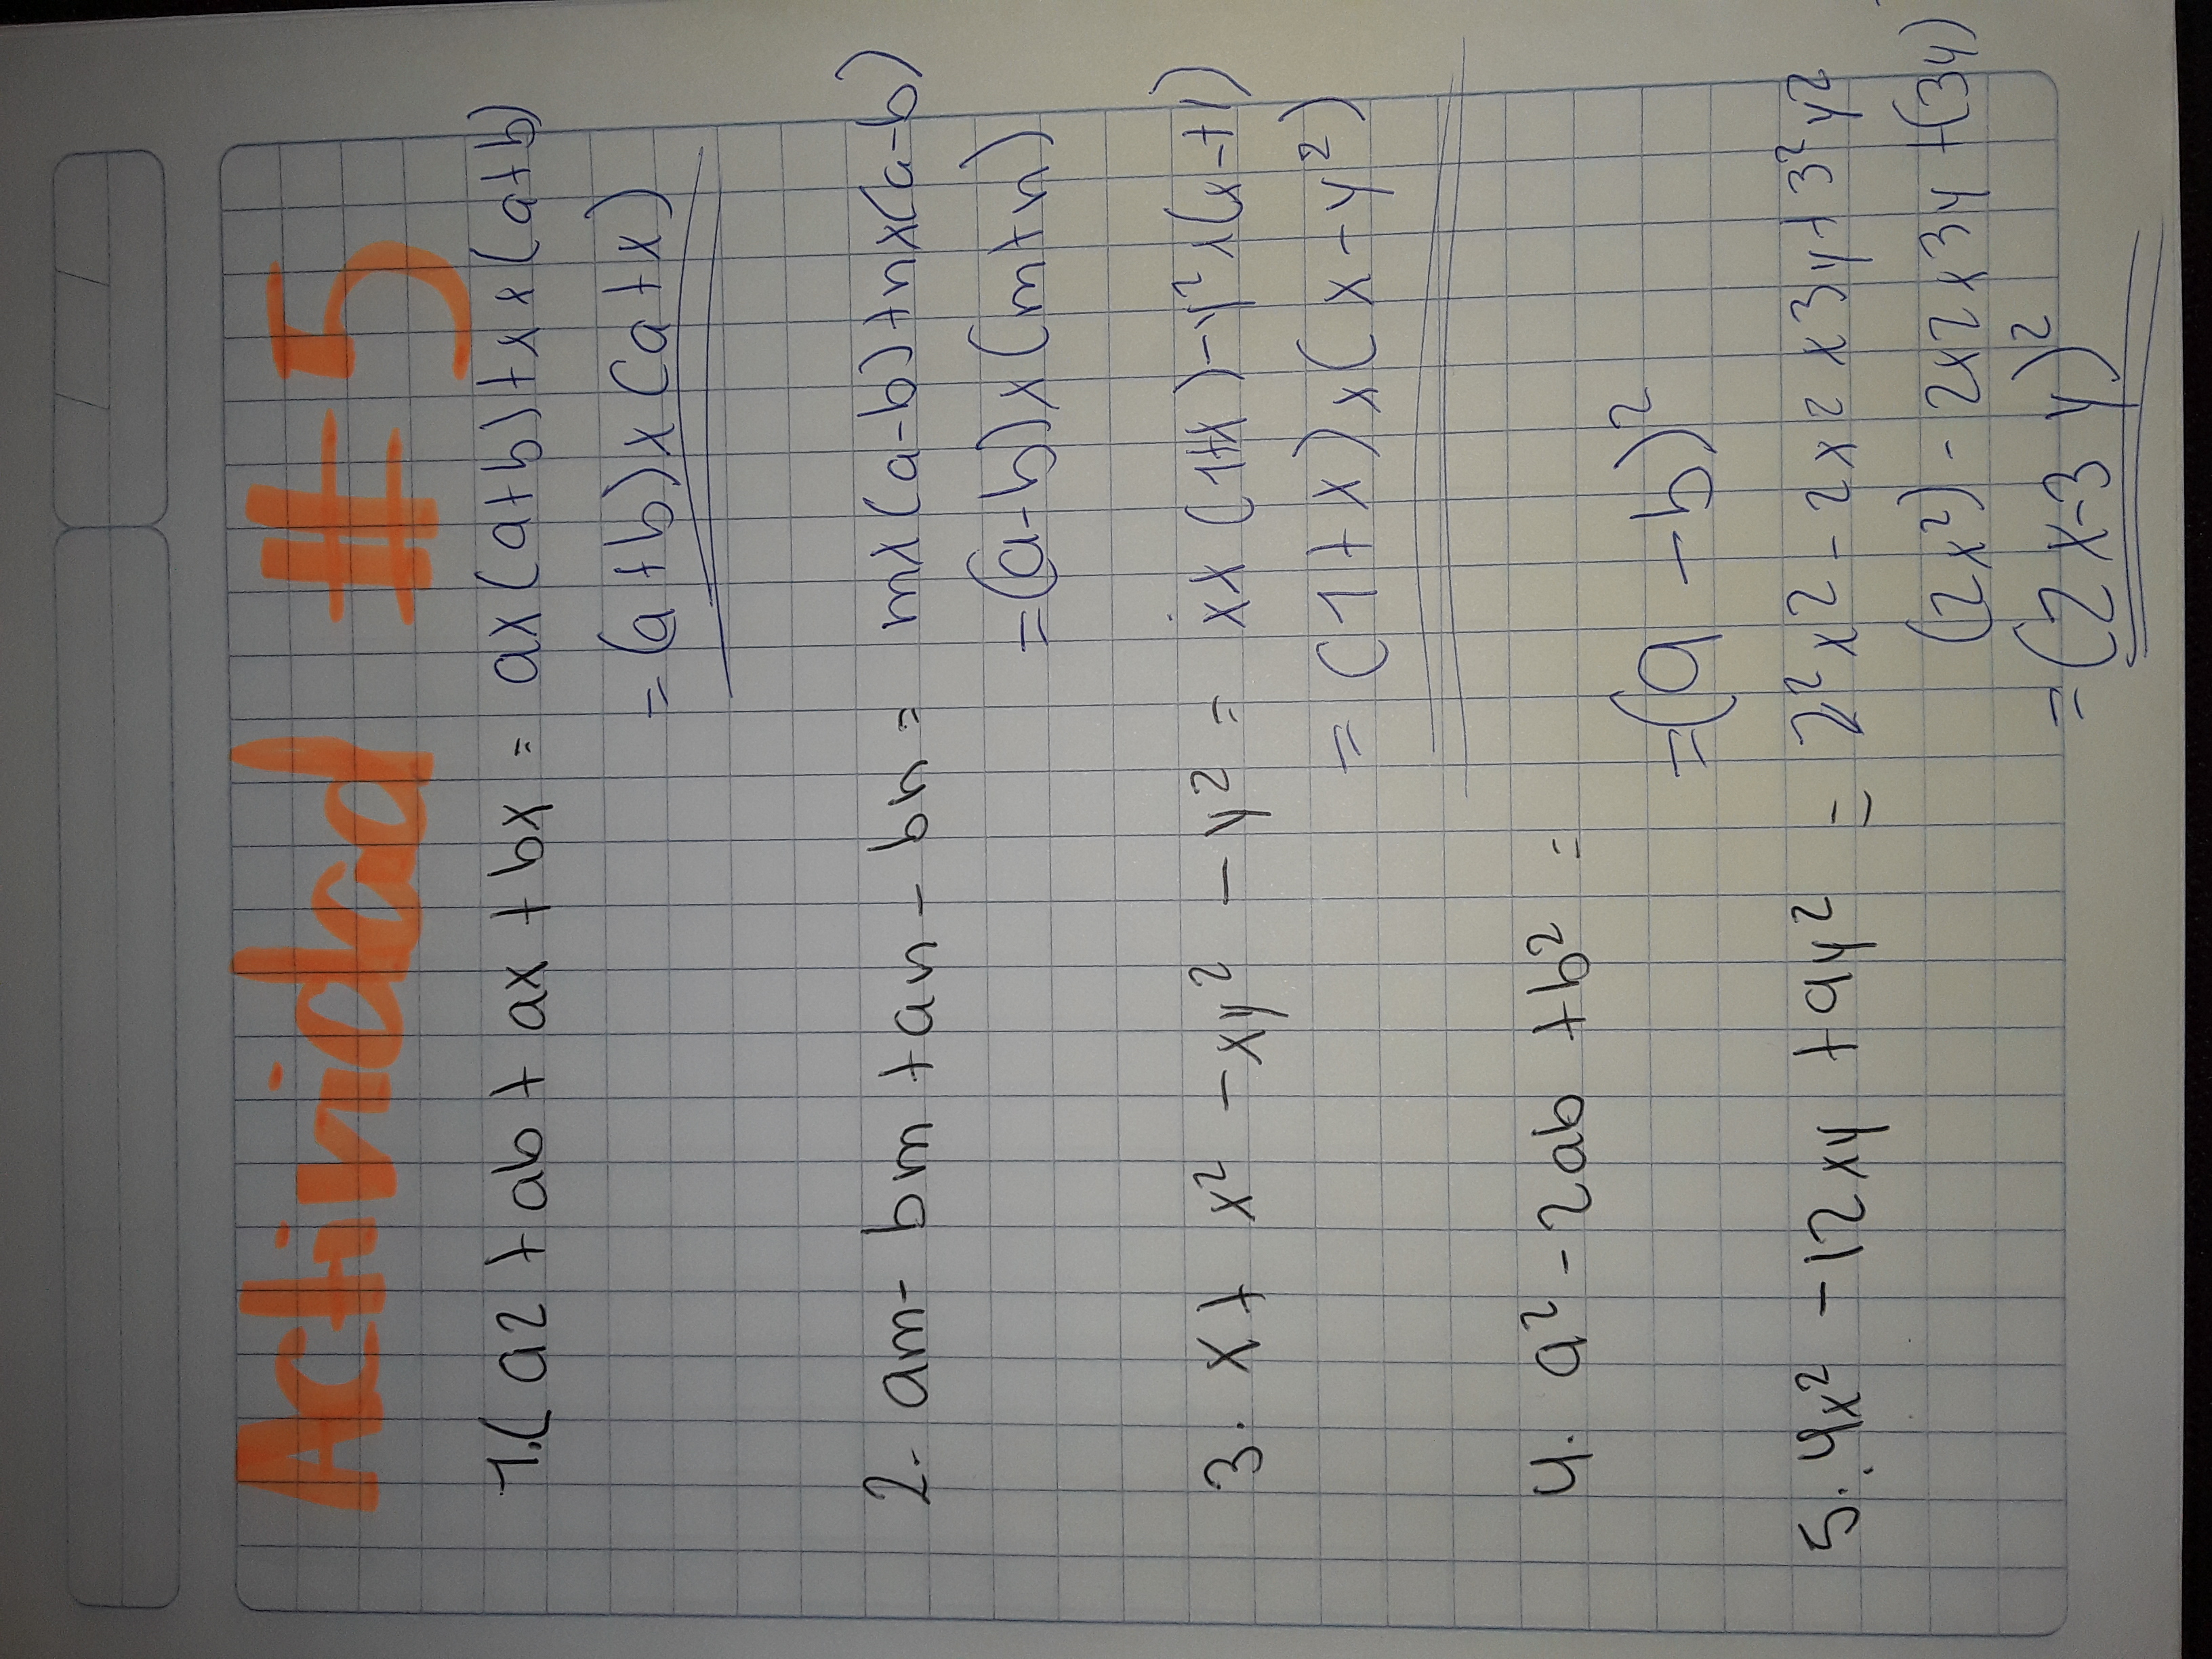 Actividad #5
1.(a2 + ab + ax + bx = ax(a+b)+xx(a+b)
=(a+b)x(a+x)
2. am- bm +an - bn = mx(a-b)+nx(a-b)
=(a-b)x(m+n)
3. x+ x² -xy² - y² = xx(1+x)-y²x(x+1)
=(1+x)x(x-y²)
4. a² -2ab +b² =
=(a -b)²
5. 4x² -12xy +9y² = 2²x2-2x2x3y+3²y2
(2x²)-2x2x3y+(3y)
=(2x-3y)²